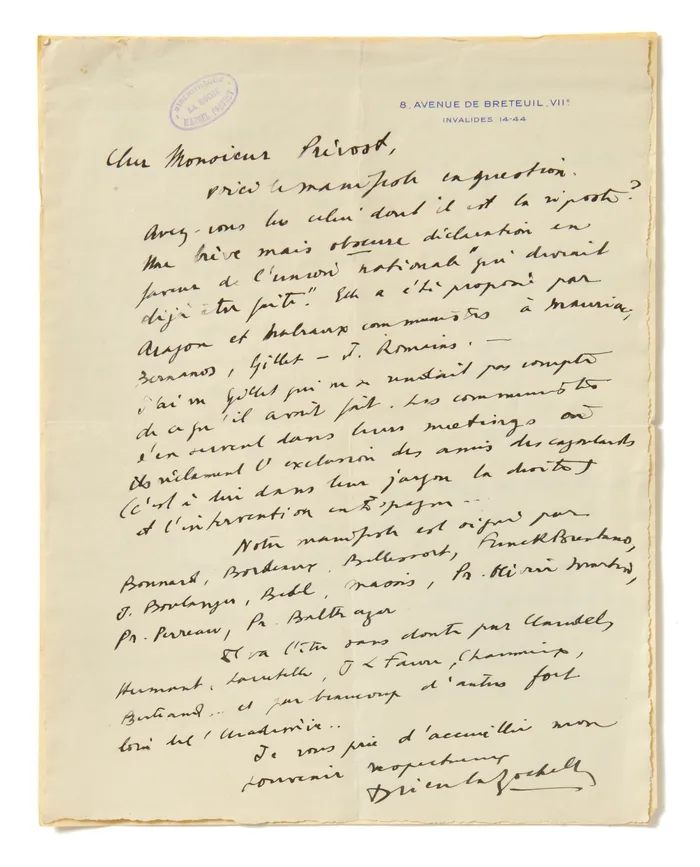 BIBLIOTHEQUE
MARCEL PRÉVOST
8, AVENUE DE BRETEUIL. VIIe
INVALIDES 14-44
Cher Monsieur Prévost,
voici le manifeste en question.
Avez-vous lu celui dont il est la riposte ?
Une brève mais obscure déclaration en
faveur de l'union nationale "qui devrait
déjà être faite". Elle a été proposée par
Aragon et Malraux communistes à Mauriac,
Bernanos, Gillet – J. Romains. –
J'ai vu Gillet qui ne se rendait pas compte
de ce qu'il avait fait. Les communistes
s'en servent dans leurs meetings où
ils réclament l'exclusion des amis des cagoulards
(c'est à dire dans leur jargon la droite)
et l'intervention en Espagne...
Notre manifeste est signé par
Bonnard, Bordeaux, Bellessort, Funck Brentano,
J. Boulenger, Massis, Pr. Olivier Martin,
Pr. Perreau, Pr. Balthazar
Il va l'être sans doute par Claudel,
Hermant, Lacretelle, J L Faure, Chaumeix,
Bertrand... et par beaucoup d'autres fort
loin de l'Académie..
Je vous prie d'accueillir mon
souvenir respectueux
Drieu la Rochelle